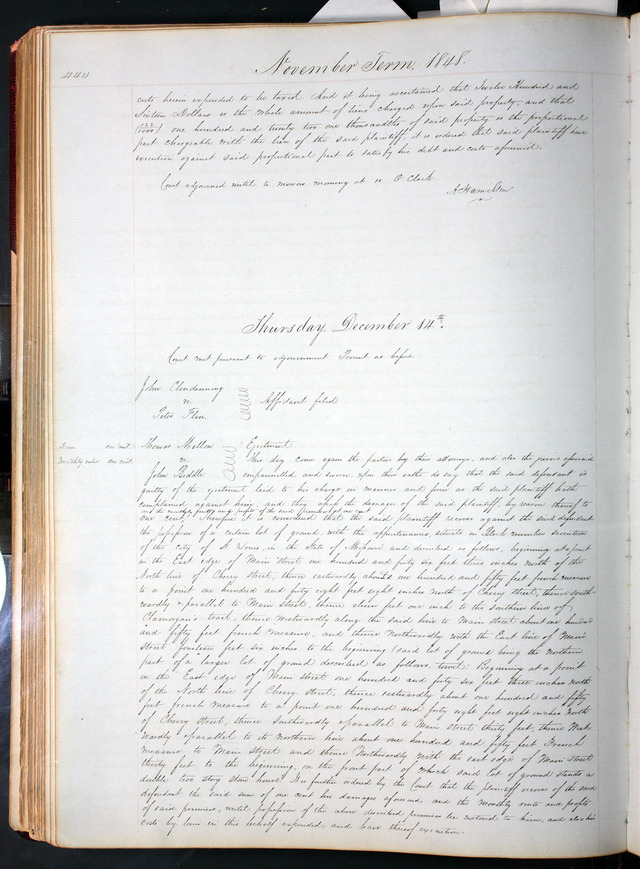 444
November Term, 1848.
costs herein expended to be taxed. And it being ascertained that Twelve Hundred and
Sixteen Dollars is the whole amount of liens charged upon said property, and that
(122/1000) one hundred and twenty two one thousandths of said property is the proportional
part chargeable with the lien of the said plaintiff, it is ordered that said plaintiff have
execution against said proportional part to satisfy his debt and costs aforesaid.
Court adjourned until to morrow morning at 10 O'Clock
A Hamilton
Thursday, December 14th.
Court met pursuant to adjournment Present as before.
John Clendenning
vs. Affidavit filed
Peter Flin.
Dam. one cent. Thomas Mellon Ejectment
Monthly value one cent vs. This day come again the parties by their attorneys, and also the jurors aforesaid
John Biddle empannelled and sworn, upon their oaths do say that the said defendant is
guilty of the ejectment laid to his charge in manner and form as the said plaintiff hath
complained against him, and they assess the damages of the said plaintiff, by reason thereof to
and the monthly rents and profits of the said premises at one cent.
one cent. Therefore it is considered that the said plaintiff recover against the said defendant
the possession of a certain lot of ground, with the appurtenances, situate in Block number seventeen
of the city of St Louis, in the State of Missouri and described as follows, beginning at a point
in the East edge of Main Street one hundred and forty six feet three inches north of the
North line of Cherry street, thence eastwardly about one hundred and fifty feet french measure
to a point one hundred and forty eight feet eight inches North of Cherry Street, thence south-
wardly & parallel to Main Street, thence eleven feet one inch to the Southern line of
Clamorgan's tract, thence westwardly along the said line to Main Street about one hundred
and fifty feet french measure, and thence Northwardly with the East line of Main
Street fourteen feet six inches to the beginning (said lot of ground being the northern
part of a larger lot of ground described as follows, towit: Beginning at a point
in the East edge of Main Street one hundred and forty six feet three inches north
of the North line of Cherry Street, thence eastwardly about one hundred and fifty
feet french measure to a point one hundred and forty eight feet eight inches North
of Cherry Street, thence Southwardly & parallel to Main Street thirty feet, thence West
wardly & parallel to its northern line about one hundred and fifty feet French
measure to Main Street and thence Northwardly with the east edge of Main Street
thirty feet to the beginning, on the front part of which said lot of ground stands a
double two story stone house. It is further ordered by the Court that the plaintiff recover of the said
defendant the said sum of one cent his damages aforesaid, and the monthly rents and profits
of said premises, until possession of the above described premises be restored to him, and also his
costs by him in this behalf expended, and have thereof execution.